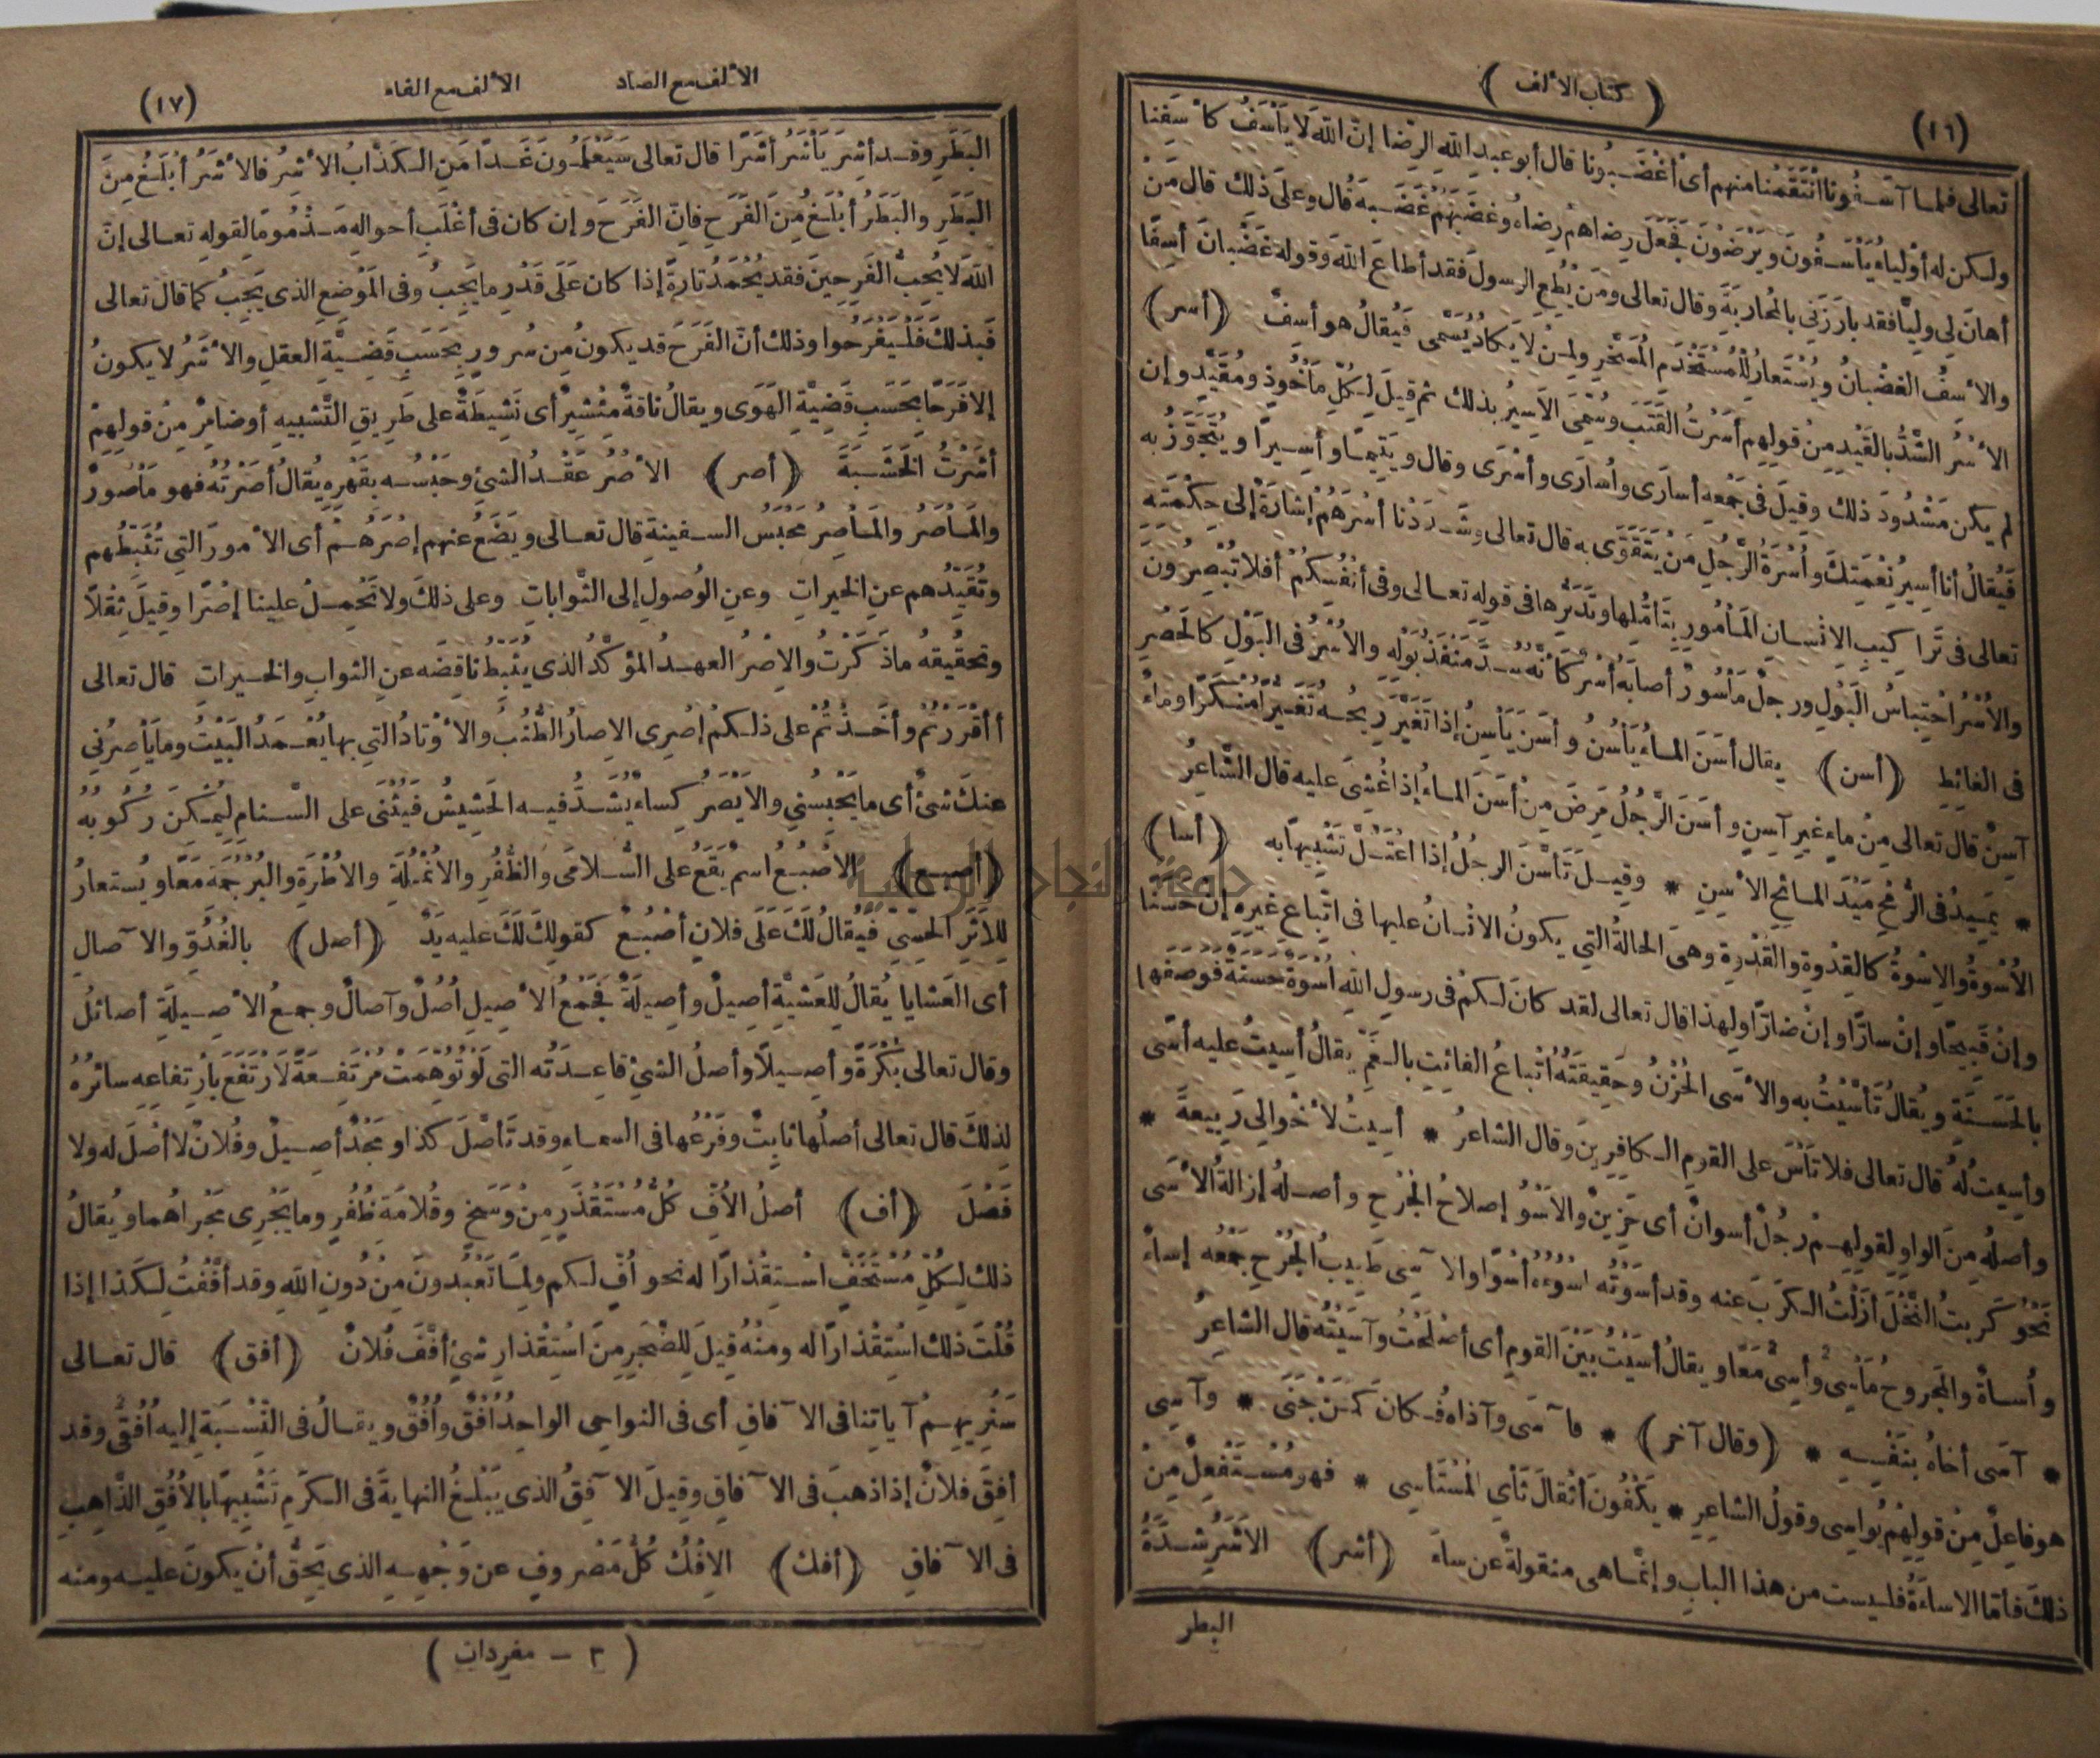 (١٦)
(كتاب الألف)
تعالى فلما آسَفُونا انْتَقَمْنا منهم أى أغْضَبُونا قال أبو عبدِ اللّٰهِ الرِّضا إنّ اللّٰهَ لا يَأْسَفُ كَأَسَفِنا
ولكن له أوْلياءُ يَأْسَفُونَ ويَرْضَوْنَ فَجَعَلَ رِضاهُم رِضاهُ وغَضَبَهُم غَضَبَهُ قال وعلى ذلك قال مَنْ
أهانَ لى وليًّا فقد بارَزَنِى بالمُحاربَةِ وقال تعالى ومَن يُطِعِ الرسولَ فقد أطاعَ اللّٰهَ وقوله غَضْبانَ أسِفًا
والأسِفُ الغضْبانُ ويُسْتَعارُ لِلْمُسْتَخْدَمِ المُسَخَّرِ ولمن لا يَكادُ يُسَمَّى فَيُقالُ هو أسِفٌ (أسر)
الأَسْرُ الشَّدُّ بالقَيْدِ مِنْ قولِهِم أسَرْتُ القَتَبَ وسُمِّىَ الأسِيرُ بذلك ثم قيلَ لِكُلِّ مَأْخُوذٍ ومُقَيَّدٍ وإن
لم يكن مَشْدُودًا ذلك وقيلَ فى جَمْعِهِ أسارَى وأُسارَى وأسْرَى وقال ويَتِيمًا وأسِيرًا ويُتَجَوَّزُ به
فَيُقالُ أنا أسِيرُ نِعْمَتِكَ وأُسْرَةُ الرَّجُلِ مَنْ يَتَقَوَّى به قال تعالى وشَدَدْنا أسْرَهُمْ إشارَةٌ إلى حِكْمَتِه
تعالى فى تَراكِيبِ الإنْسانِ المَأْمُورِ بِتَأَمُّلِها وتَدَبُّرِها فى قولِهِ تعالى وفى أنْفُسِكُمْ أفلا تُبْصِرُونَ
والأُسْرُ احْتِباسُ البَوْلِ ورجلٌ مَأْسُورٌ أصابَهُ أُسْرٌ كأنَّهُ سُدَّ مَنْفَذُ بَوْلِهِ والأُسْرُ فى البَوْلِ كالحَصْرِ
فى الغائِطِ (أسن) يقال أسَنَ الماءُ يَأْسُنُ وأسَنَ يَأْسِنُ إذا تَغَيَّرَ رِيحُه تَغَيُّرًا مُنْكَرًا وماءٌ
آسِنٌ قال تعالى مِنْ ماءٍ غيرِ آسِنٍ وأسِنَ الرَّجُلُ مَرِضَ مِنْ أسَنَ الماءُ إذا غُشِىَ عليه قال الشّاعِرُ
* يَمِيدُ فى الرُّمْحِ مَيْدَ المائِحِ الأسِنِ * وقيلَ تَأَسَّنَ الرجلُ إذا اعْتَلَّ تَشْبِيهًا به (أسا)
الأُسْوَةُ والإسْوَةُ كالقِدْوَةِ والقُدْوَةِ وهى الحالةُ التى يكونُ الإنْسانُ عليها فى اتِّباعِ غَيْرِهِ إن حَسَنًا
وإنْ قَبِيحًا وإنْ سارًّا وإنْ ضارًّا ولهذا قال تعالى لقد كانَ لكمْ فى رسولِ اللّٰهِ أُسْوَةٌ حَسَنَةٌ فَوَصَفَها
بالحَسَنَةِ ويُقالُ تَأَسَّيْتُ به والأسَى الحُزْنُ وحَقِيقَتُهُ اتْباعُ الفائِتِ بالغَمِّ يقالُ أسِيتُ عليه أسًى
وأسِيتُ لَهُ قال تعالى فلا تَأْسَ على القومِ الكافرِينَ وقال الشاعرُ * أسِيتُ لأخْوالِى رَبِيعَةَ *
وأصلُهُ مِنَ الواوِ لقولِهِمْ رَجُلٌ أسْوانُ أى حَزِينٌ والأسْوُ إصلاحُ الجُرْحِ وأصلُهُ إزالةُ الأسَى
نَحْوُ كَرَبتُ النَّخْلَ أزَلْتُ الكَرَبَ عنه وقد أسَوْتُه أسُوءُه أسْوًا والآسِى طَبِيبُ الجُرْحِ جَمْعُه إساءٌ
وأُساةٌ والمَجروحُ مَأْسِىٌّ وأسِىٌّ مَعًا ويقالُ أسَيْتُ بَيْنَ القومِ أى أصْلَحْتُ وآسَيْتُهُ قال الشاعرُ
* آسَى أخاهُ بنَفْسِهِ * (وقال آخر) * فآسَى وآذاه فكان كَمَنْ جَنَى * وآسِى
هو فاعِلٌ مِنْ قولِهِمْ يُواسِى وقولُ الشاعرِ * يَكْفُونَ أثْقالَ ثَأْىِ المُسْتَآسِى * فهو مُسْتَفْعِلٌ مِنْ
ذلك فأمّا الإساءَةُ فليست من هذا البابِ وإنَّما هى منقولةٌ عن ساءَ (أشر) الأشَرُ شِدَّةُ
البطر
الألف مع الصاد الألف مع الفاء
(١٧)
البَطَرِ وقد أشِرَ يَأْشَرُ أشَرًا قال تعالى سَيَعْلَمُونَ غَدًا مَنِ الكَذّابُ الأشِرُ فالأشَرُ أبْلَغُ مِنَ
البَطَرِ والبَطَرُ أبْلَغُ مِنَ الفَرَحِ فإنّ الفَرَحَ وإن كان فى أغْلَبِ أحوالِهِ مَذْمُومًا لقولِهِ تعالى إنّ
اللّٰهَ لا يُحِبُّ الفَرِحِينَ فقد يُحْمَدُ تارةً إذا كان عَلَى قَدْرِ ما يَجِبُ وفى المَوْضِعِ الذى يَجِبُ كما قال تعالى
فَبذلك فَلْيَفْرَحُوا وذلك أنّ الفَرَحَ قد يكونُ مِن سُرورٍ بِحَسَبِ قَضِيَّةِ العقلِ والأشَرُ لا يكونُ
إلّا فَرَحًا بِحَسَبِ قَضِيَّةِ الهَوَى ويقالُ ناقةٌ مِئْشِيرٌ أى نَشِيطَةٌ على طَرِيقِ التَّشْبِيهِ أو ضامِرٌ مِنْ قولِهِمْ
أشَرْتُ الخَشَبَةَ (أصر) الأصْرُ عَقْدُ الشئِ وحَبْسُه بِقَهْرِهِ يُقالُ أصَرْتُهُ فهو مَأْصُورٌ
والمَأْصَرُ والمَأْصِرُ مَحْبَسُ السفينةِ قال تعالى ويَضَعُ عنهم إصْرَهُمْ أى الأمورَ التى تُثَبِّطُهم
وتُقَيِّدُهم عنِ الخيراتِ وعنِ الوُصُولِ إلى الثَّواباتِ وعلى ذلك ولا تَحْمِلْ علينا إصْرًا وقيلَ ثِقْلًا
وتحقِيقُهُ ما ذَكَرْتُ والإصْرُ العهدُ المؤكَّدُ الذى يُثَبِّطُ ناقِضَه عنِ الثوابِ والخيراتِ قال تعالى
أأقْرَرْتُمْ وأخَذْتُمْ على ذلكمْ إصْرِى الإصارُ الطُّنُبُ والأوْتادُ التى بها يُعْمَدُ البَيْتُ وما يَأْصِرُنِى
عنكَ شئٌ أى ما يَحْبِسُنِى والأيْصَرُ كِساءٌ يُشَدُّ فيه الحَشِيشُ فَيُثْنَى على السَّنامِ لِيُمْكِنَ رُكُوبُهُ
(أصبع) الإصْبَعُ اسْمٌ يَقَعُ على السُّلامَى والظُّفُرِ والأنْمُلَةِ والأُطْرَةِ والبُرْجُمَةِ مَعًا ويُستعارُ
للأَثَرِ الحِسِّىِّ فيُقالُ لَكَ عَلَى فلانٍ أصْبُعٌ كقولِكَ لَكَ عليه يَدٌ (أصل) بالغُدُوِّ والآصالِ
أى العَشايا يُقالُ لِلعَشِيَّةِ أصِيلٌ وأصِيلَةٌ فَجَمْعُ الأصِيلِ أُصُلٌ وآصالٌ وجمعُ الأصِيلَةِ أصائلُ
وقال تعالى بُكْرَةً وأصِيلًا وأصلُ الشئِ قاعِدَتُه التى لَوْ تُوُهِّمَتْ مُرْتَفِعَةً لارْتَفَعَ بارْتِفاعِهِ سائرُهُ
لِذلك قال تعالى أصلُها ثابِتٌ وفَرْعُها فى السماءِ وقد تَأَصَّلَ كذا ومَجْدٌ أصِيلٌ وفُلانٌ لا أصْلَ له ولا
فَصْلَ (أف) أصلُ الأُفِّ كُلُّ مُسْتَقْذَرٍ مِنْ وَسَخٍ وقُلامَةِ ظُفُرٍ وما يَجْرِى مَجْراهُما ويُقالُ
ذلك لِكُلِّ مُسْتَخَفٍّ اسْتِقْذارًا له نحو أُفٍّ لكم ولِمَا تَعْبُدونَ مِنْ دُونِ اللّٰهِ وقد أفَّفْتُ لِكَذا إذا
قُلْتَ ذلك اسْتِقْذارًا له ومِنْهُ قيلَ لِلضَّجَرِ مِنَ اسْتِقْذارِ شئٍ أفَّفَ فُلانٌ (أفق) قال تعالى
سَنُرِيهِمْ آياتِنا فى الآفاقِ أى فى النواحِى الواحدُ أُفْقٌ وأُفُقٌ ويقالُ فى النِّسْبَةِ إليه أُفُقِىٌّ وقد
أفِقَ فلانٌ إذا ذهبَ فى الآفاقِ وقيلَ الآفِقُ الذى يَبْلُغُ النهايةَ فى الكَرَمِ تَشْبِيهًا بالأُفُقِ الذّاهِبِ
فى الآفاقِ (أفك) الإفْكُ كُلُّ مَصْروفٍ عن وَجْهِهِ الذى يَحِقُّ أنْ يكونَ عليه ومنه
(٣ - مفردات)
جامعة النجاح الوطنية